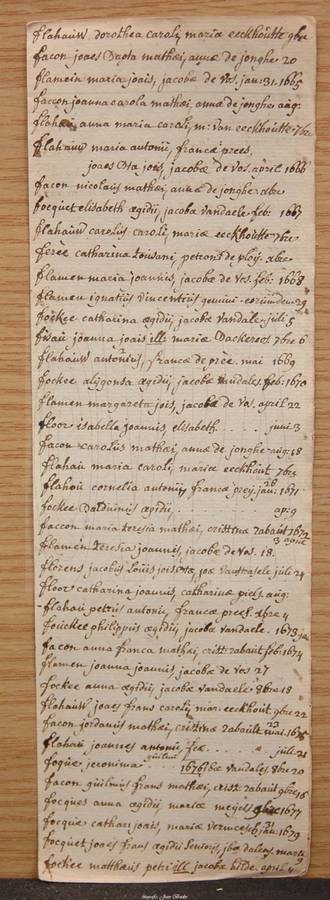 flahauw dorothea caroli, maria eeckhoutte 9bre
facon joaes Dapta mathæi, annæ de jonghe 20
flamein maria joais, jacobæ de vos. jan: 31. 1665
faccon joanna carola mathæi, annæ de jonghe aug:
flahau anna maria caroli, m: van eeckhoutte 7bre
flahauw maria antonii, francæ prees.
joaes Bta jois, jacobæ de vos. april 1666
facon nicolaus mathæi, annæ de jonghe xbre
focquet elisabeth ægidii, jacoba vandaele feb: 1667
flahauw carolus caroli, mariæ eeckhoutte 7bre
ferée catharina petroni de ploij. xbre
flamen maria joannis, jacobæ de vos. feb: 1668
flamen ignatius vincentius gemini eorumdem 29
fockee catharina ægidii, jacobæ vandale juli 5
joanna joais ill: mariæ Dackeroot 7bre 6
flahauw antonius, francæ de prée. mai 1669
fockee aldgonsa ægidii, jacobæ vandales feb: 1670
flamen margareta jois, jacobæ de vos. april 22
floor isabella joannis, elisabeth . . . . juni 3
facon carolus mathæi, annæ de jonghe aug: 18
flahau maria caroli, mariæ eeckhout 7bre
flahou cornelia antonii, francæ prey. jan: 26 1671
fockee Balduinus ægidii . . . . ap: 9
faccon maria teresia mathæi, cristinæ Rabaut 1672
flamen teresia joannis, jacobæ de vos. 18. 3 april
florens jacobus louis jois Bta, joæ Vanstrasele juli 24
floor catharina joannis, catharinæ piels. aug:
flahau petrus antonii, francæ prees. xbre 4
fouckee philippus ægidii, jacobæ vandaele. 1673
facon anna franca mathæi, crist: Rabaut feb: 1674
flamen joanna joannis, jacobæ de vos 27
fockee anna ægidii, jacobæ vandaele 8bre 18
flahauw joaes frans caroli, mar: eeckhout 9bre 22
facon jordanus mathæi, cristinæ Rabault 23 mai. 1676
flahau joannes antonii, fcæ . . . . juli: 21
foque jeronima guilmi 1676 jbæ vandales. 8bre 20
facon guilmus frans mathæi, crist: Rabaut 9bre 16
focques anna ægidii, mariæ meijes 9bre 1677
focque cathar: joais, mariæ vermeesch jan: 1679
focquet joaes frans ægidii senioris, jbæ daleos. marti 9
fockee mattheus petri ill: jacobæ hilde. april 4